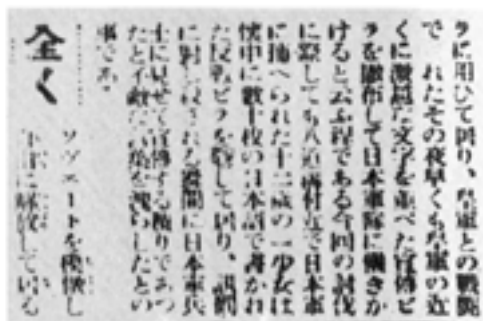 ラに用ひて居り、皇軍との戦端
で れたその夜早くも皇軍の近
くに激越な文字を並べた宣傳ビ
ラを撒布して日本軍隊に働きか
けると云ふ程である今回の討伐
に際しても八道溝村近で日本軍
に捕へられた十二歳の一少女は
懐中に數十枚の日本語で書かれ
た反戦ビラを蔵して居り、
に射 される 間に日本軍兵
士に見せて宣傳する積りであつ
たと 敵な 葉を残らしたとの
事である
全く
ソヴエートを模倣し
に 放して居る